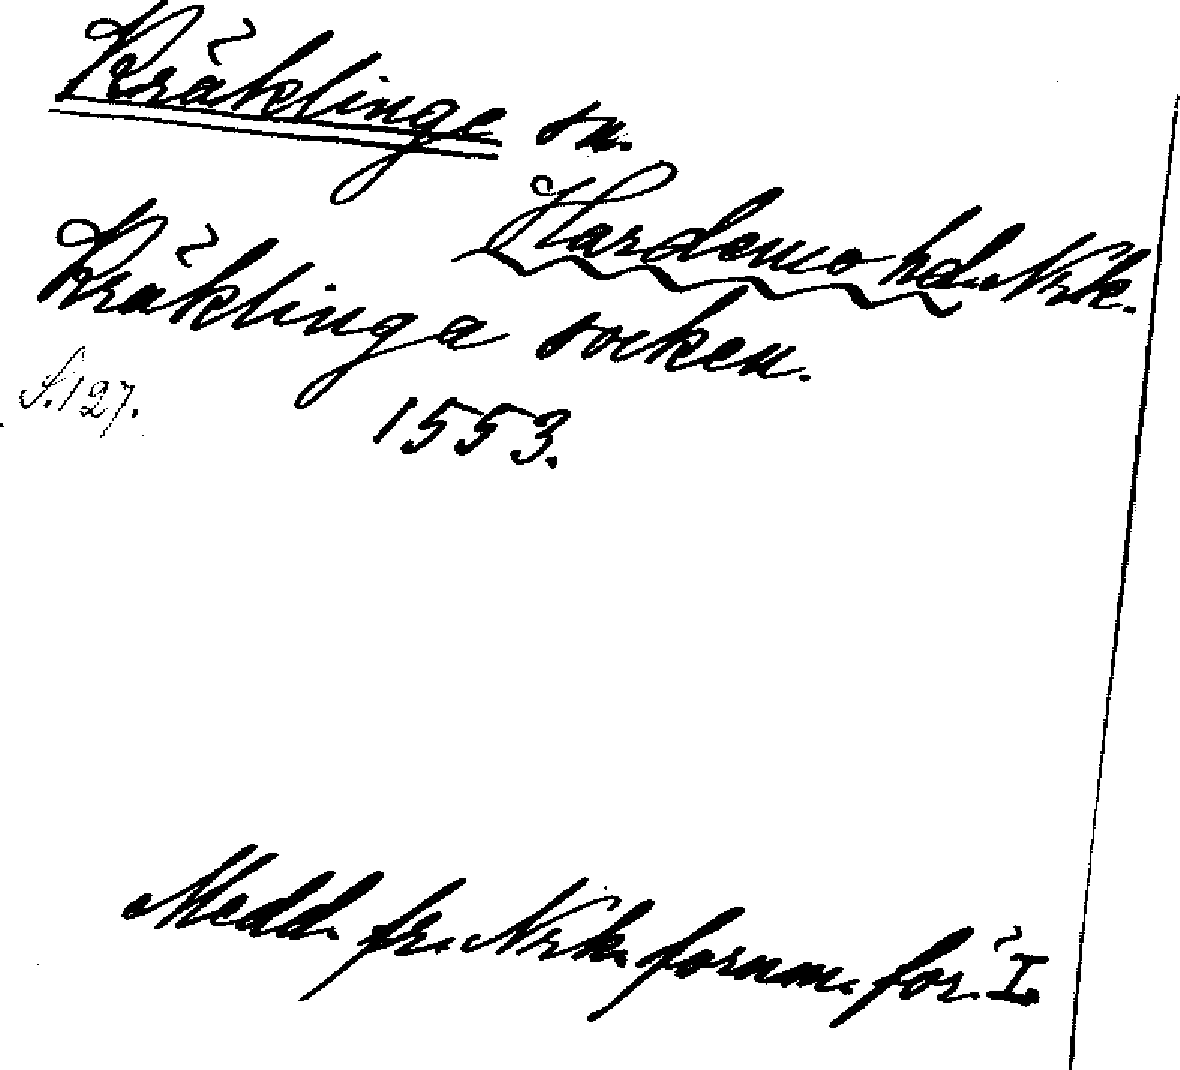 Kräklinge sn.
Hardemo hd. Nrk.
Kräklinga socken.
S. 127.
1553.
Medd. fr. Nrk. fornm. för. I.